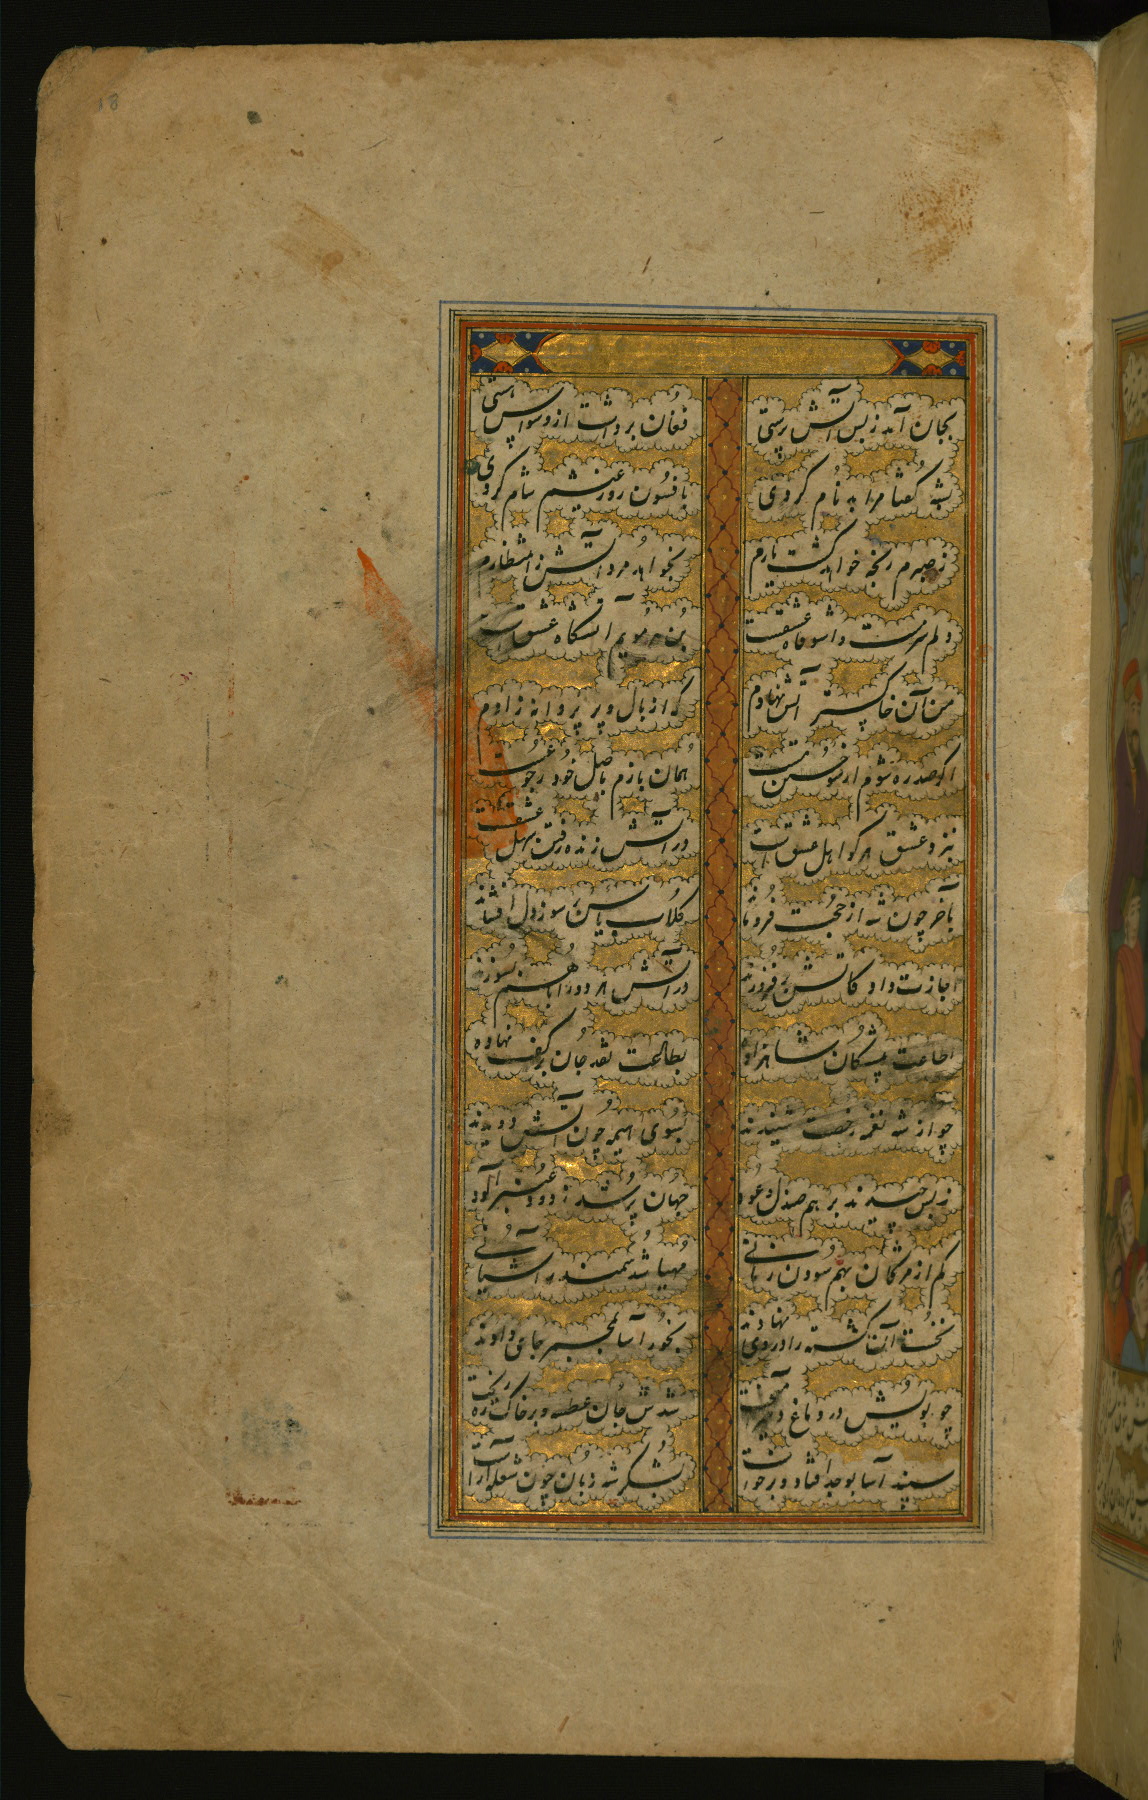 18
بجان آمد ز بس آتش پرستی فغان برداشت از وسواس هستی
بشه گفتا مرا بدنام کردی بافسون روز عیشم شام کردی
ز صبرم رنجه خواهد گشت یارم نخواهد مرد آتش ز انتظارم
دلم سرمست داشوقاه عشقست بن هر مویم آتشگاه عشق است
من آن خاکستر آتش نهادم که از بال و پر پروانه زادم
اگر صد ره شوم از سوختن همان بازم باصل خود رجوعست
بنزد عشق هر کو اهل عشق است در آتش زنده رفتن سهل عشقست
بآخر چون شه از حجت فروماند گلاب یاس بر سوز دل افشاند
اجازت داد کاتش بر فروزند در آتش هر دو را با هم بسوزند
اطاعت پیشگان شاهزاده بطاعت نقد جان بر کف نهاده
چو از شه نغمه رخصت شنیدند بسوی هیمه چون آتش دویدند
ز بس چیدند بر هم صندل و عود جهان پر شد ز دود عنبر آلود
کم از مژگان بهم سودن زمانی مهیا شد سمندر آشیانی
نخست آن کشته را در وی نهادند بخور آسا بمجمر جای دادند
چو بویش در دماغ شدش جان عطسه و بر خاک ره ریخت
سپند آسا بوجد افتاد و برخواست بشکر شه زبان چون شعله آراست